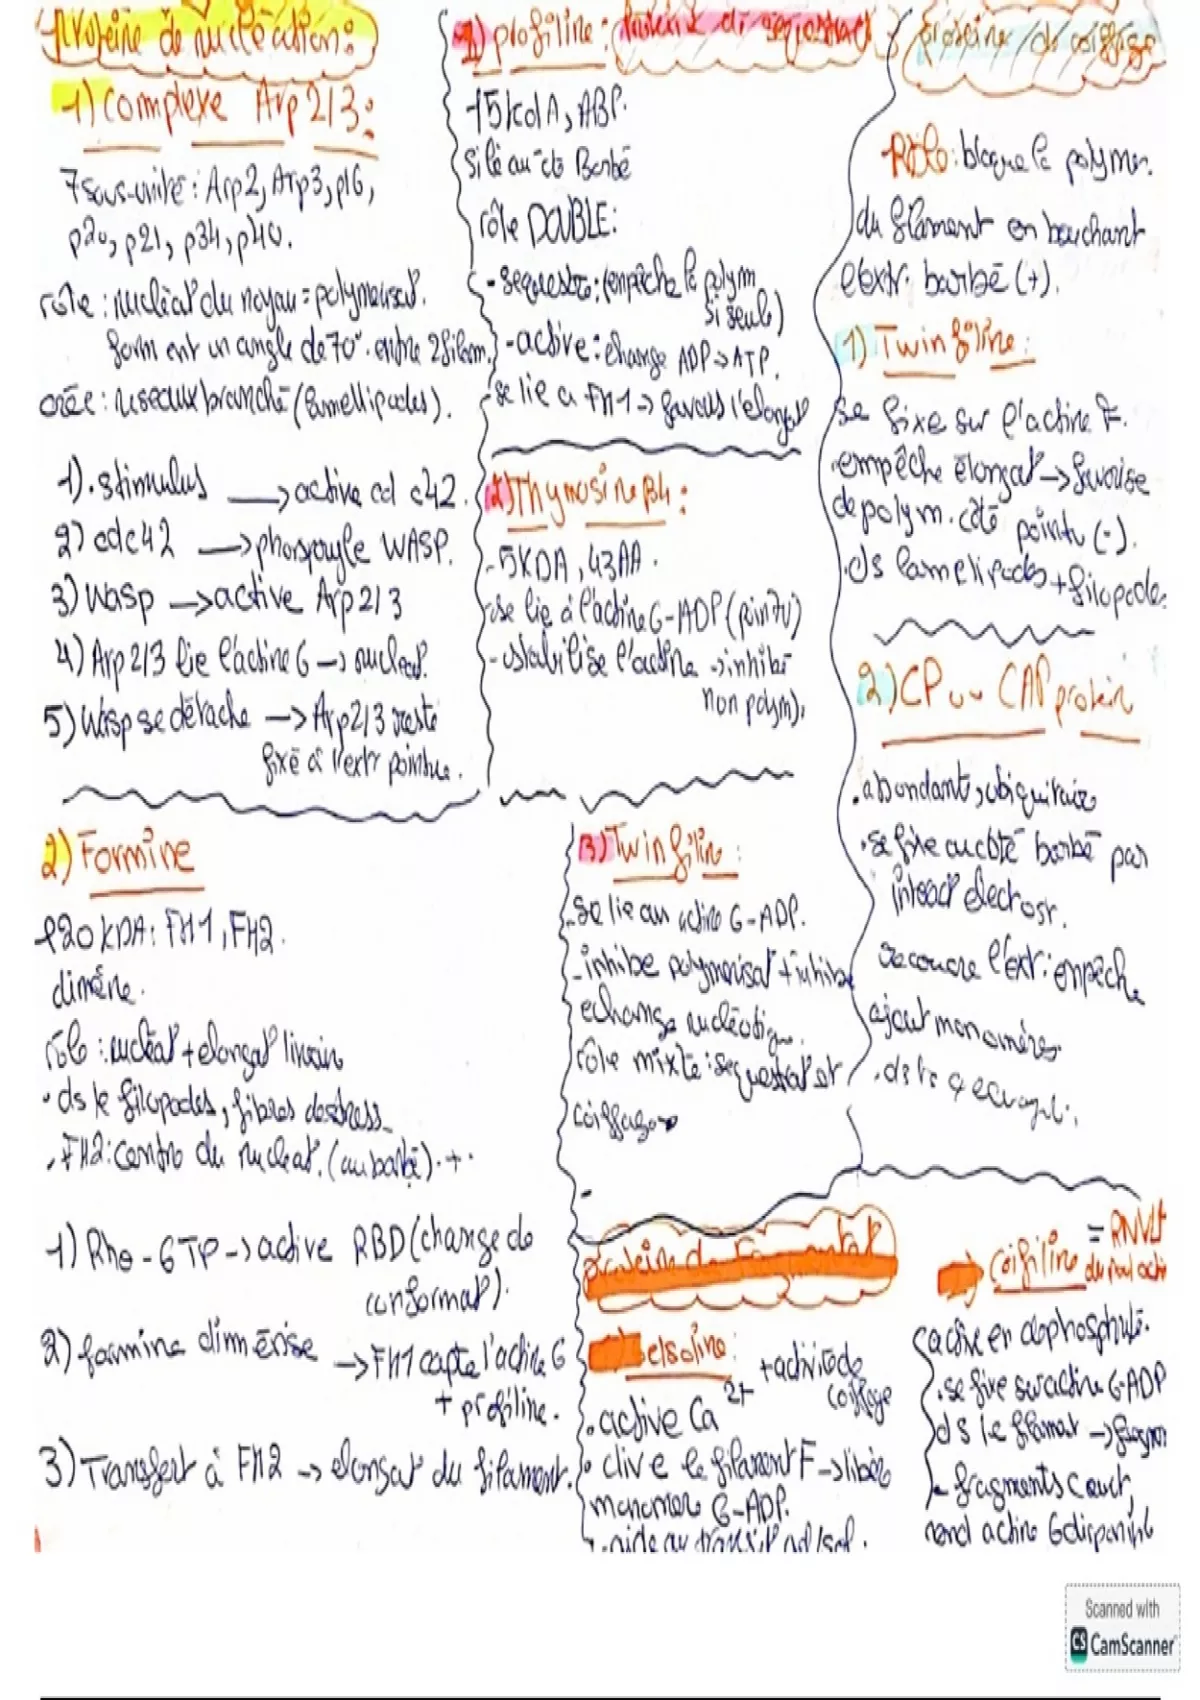 Protéine de nucléation:
1) Complexe Arp 2/3:
7 sous-unité: Arp2, Arp3, p16,
p20, p21, p34, p40.
rôle: nucléat° du noyau = polymérisat°.
form ent un angle de 70°. entre 2 filam.
crée: reseaux branché (lamellipodes).
1). stimulus → active cd c42.
2) cdc42 → WASP.
3) Wasp → active Arp 2/3
4) Arp 2/3 lie l'actine G → nucleat°.
5) Wasp se détache → Arp 2/3 reste
fixé à l'extr pointue.
2) Formine
120 KDA: FH1, FH2.
dimère.
rôle: nucléat° + elongat° linéair
• ds le filopodes, fibres de stress
. FH2: centre du nucleat°. (au barbé). +.
1) Rho - GTP → active RBD (change de
conformat°).
2) formine dimmérise → FH1 capte l'actine G
+ profiline.
3) Transfert à FH2 → elongat° du filament.
1) profiline: Protéine de séquestrat°
15 KdA, ABP.
Si lé au cté Barbé
rôle DOUBLE:
- sequestre: (empêche la polym
si seule)
- active: change ADP → ATP.
- se lie a FH1 → favorise l'elongat°
2) Thymosine β4:
- 5KDA, 43AA.
- se lie à l'actine G-ADP (pointu)
- stabilise l'actine → inhibé
non polym),
3) Twinfilin:
- Se lie au actine G-ADP.
- inhibe polymerisat° + inhibe
echange nucléotiq.
rôle mixte: sequestrat° et
coiffage
protéine de coiffage
Rôle: bloque la polymer.
du filament en bouchant
l'extr. barbé (+).
1) Twinfiline:
se fixe sur l'actine F.
. empêche élongat° → favorise
depolym. côté pointu (-).
. ds lamelipodes + filopodes
2) CP ou CAP protein
. abondant, ubiquitaire
. se fixe au côté barbé par
interact° electrost.
recouvre l'extr: empêche
ajout monomères.
protéine de Fragmentat°
Gelsoline: + activité de
coiffage
. active Ca 2+
. clive le filament F → libèr
monomer G-ADP.
→ Cofiline
. active en dephosphité.
. se fixe sur actine G-ADP
ds le filamat → fragm
- fragments court,
rend actine G disponible
Scanned with
CS CamScanner